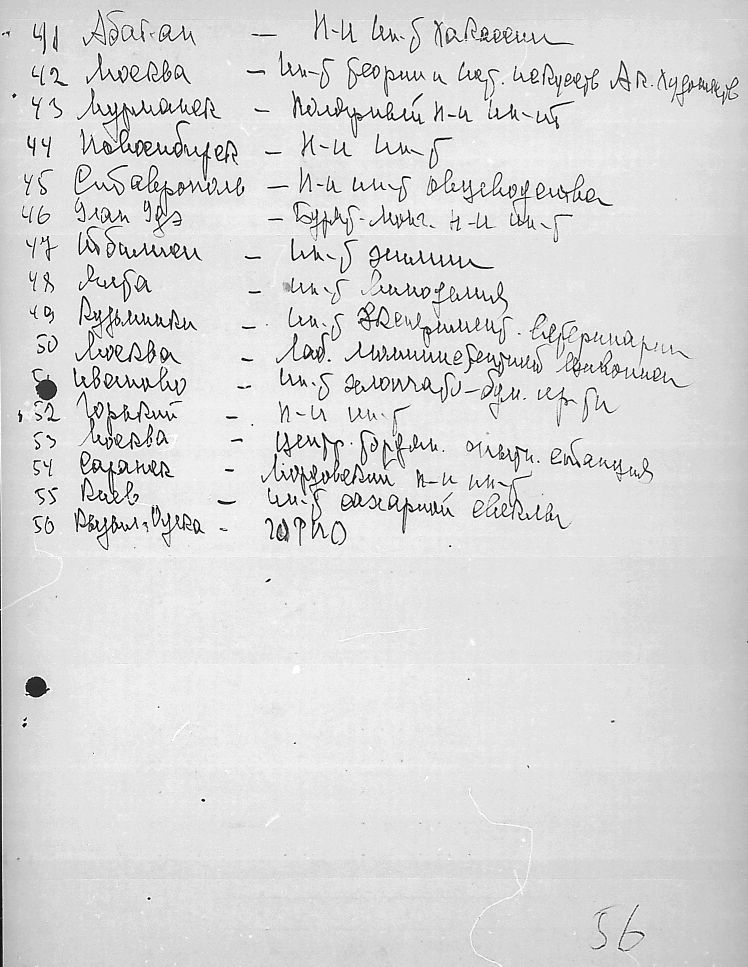 41 Абакан — Н-и ин-т Хакассии
42 Москва — ин-т теории и ист. искусств Ак. художеств
43 Мурманск — Полярный н-и ин-т
44 Новосибирск — Н-и ин-т
45 Ставрополь — Н-и ин-т овцеводства
46 Улан Удэ — Бурят-Монг. н-и ин-т
47 Тбилиси — ин-т химии
48 Ялта — ин-т виноделия
49 Кузьминки — ин-т эксперимент. ветеринарии
50 Москва — Лаб.
51 Иваново — ин-т хлопчато-бум. пр-ти
52 Горький — н-и ин-т
53 Москва — центр. торфян. опытн. станция
54 Саранск — Мордовский н-и ин-т
55 Киев — ин-т сахарной свеклы
56
56